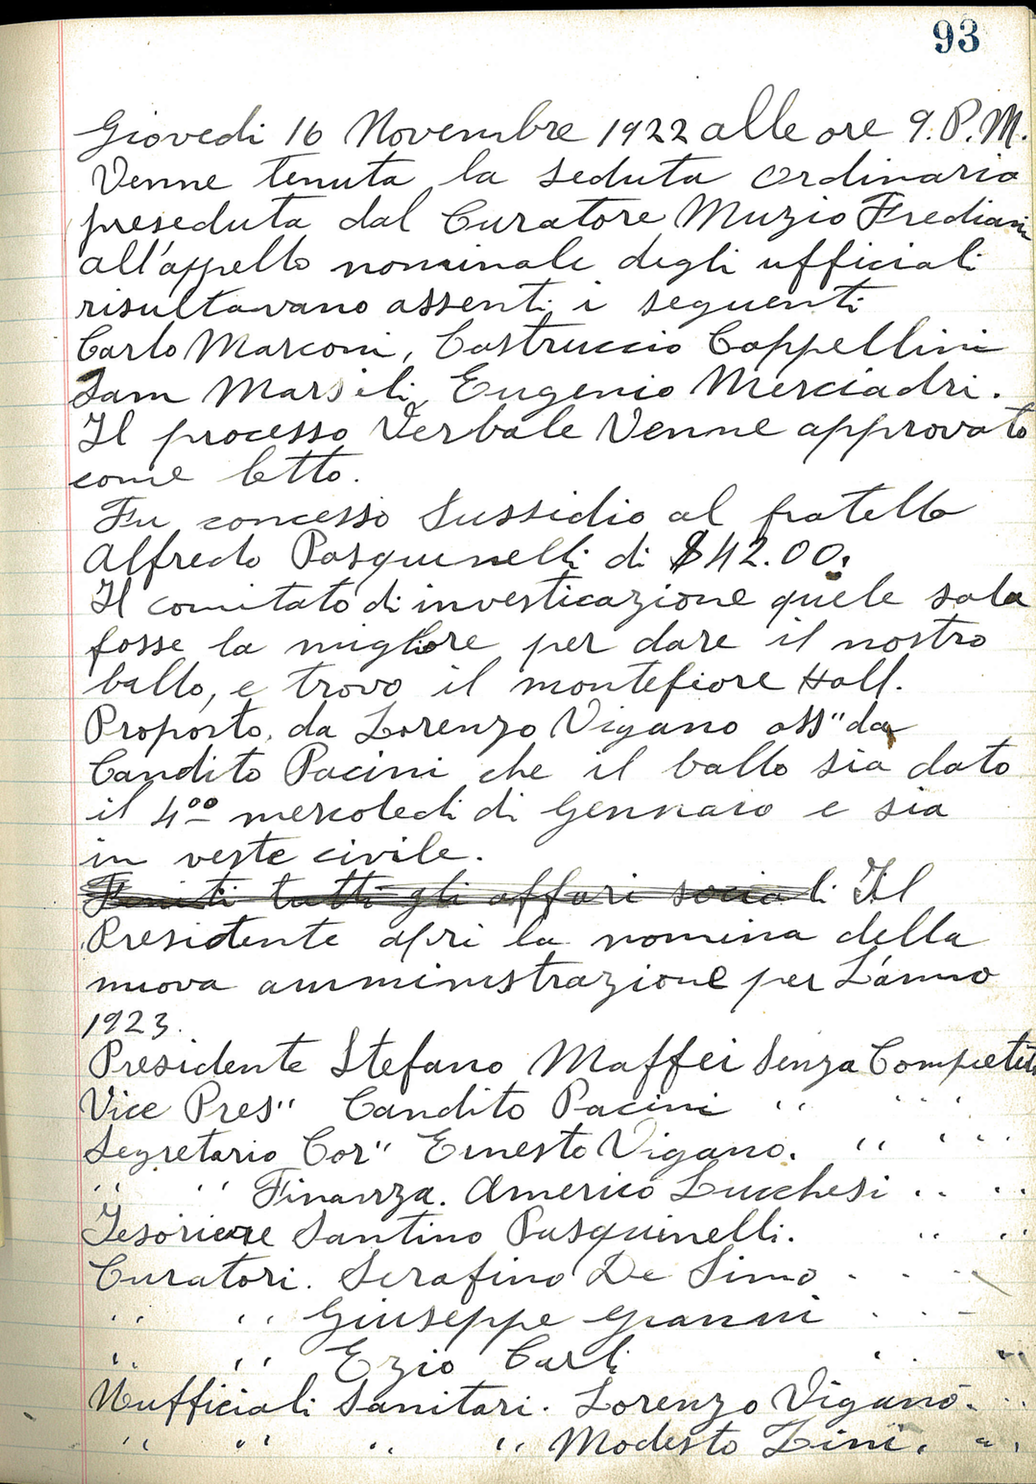 93
Giovedi 16 Novembre 1922 alle ore 9. P.M.
Venne tenuta la seduta ordinaria
preseduta dal Curatore Muzio Frediani
all'appello nominale degli ufficiali
risultavano assenti i seguenti
Carlo Marconi, Castruccio Cappellini
Sam Marsili, Eugenio Merciadri.
Il processo Verbale Venne approvato
come letto.
Fu concesso Sussidio al fratello
Alfredo Pasquinelli di $42.00.
Il comitato di investicazione quele sala
fosse la migliore per dare il nostro
ballo, e trovo il montefiore Hall.
Proposto, da Lorenzo Vigano ass" da
Candito Pacini che il ballo sia dato
il 4oo mercoledi di Gennaio e sia
in veste civile.
Finiti tutti gli affari sociali Il
Presidente apri la nomina della
nuova amministrazione per L'anno
1923.
Presidente Stefano Maffei Senza Competit
Vice Pres" Candito Pacini " " "
Segretario Cor" Ernesto Vigano. " " "
" " Finanza. Americo Lucchesi " "
Tesoriere Santino Pasquinelli. " "
Curatori. Serafino De Simo " "
" " Giuseppe Gianni " "
" " Ezio Carli " "
Uufficiali Sanitari. Lorenzo Viganó. "
" " " " Modesto Zini. "